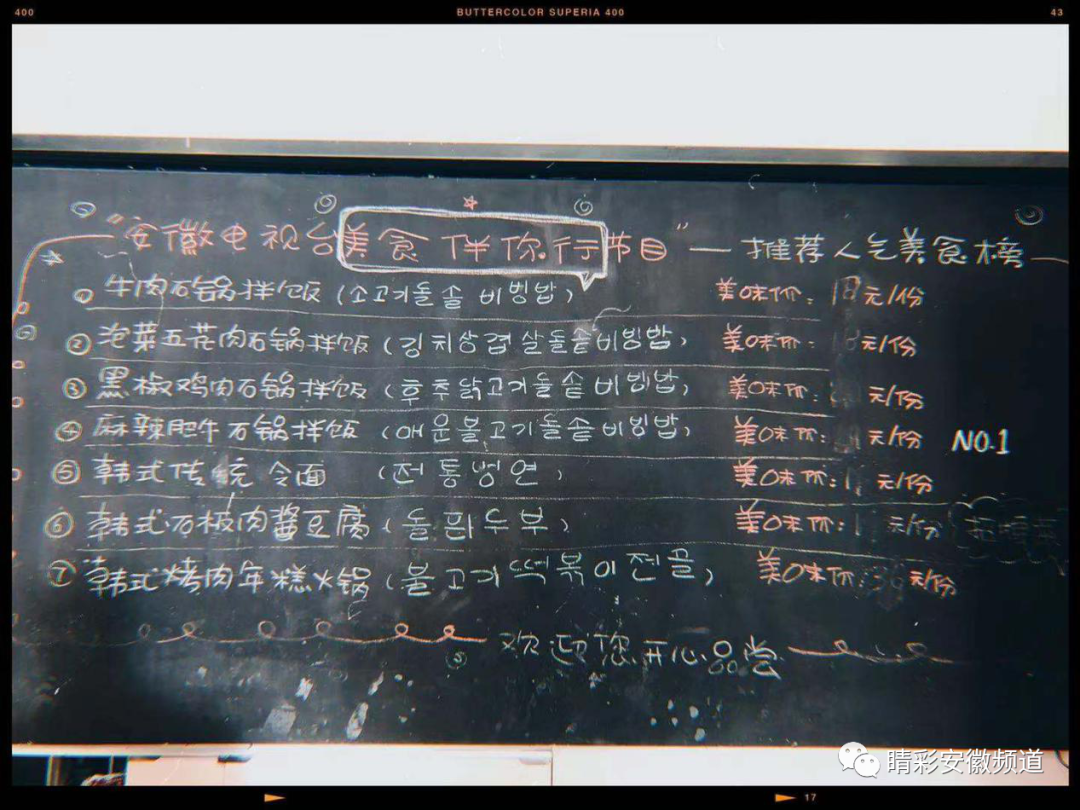 400 BUTTERCOLOR SUPERIA 400 43
“安徽电视台美食伴你行节目”—推荐人气美食榜—
① 牛肉石锅拌饭(소고기돌솥비빔밥) 美味价: 18元/份
② 泡菜五花肉石锅拌饭(김치삼겹살돌솥비빔밥) 美味价: 元/份
③ 黑椒鸡肉石锅拌饭(후추닭고기돌솥비빔밥) 美味价: 元/份
④ 麻辣肥牛石锅拌饭(매운불고기돌솥비빔밥) 美味价: 元/份 NO.1
⑤ 韩式传统令面 (전통냉면) 美味价: 元/份
⑥ 韩式石板肉酱豆腐(돌판두부) 美味价: 元/份
⑦ 韩式烤肉年糕火锅(불고기떡볶이전골) 美味价: 元/份
欢迎您开心品尝
睛彩安徽频道
17